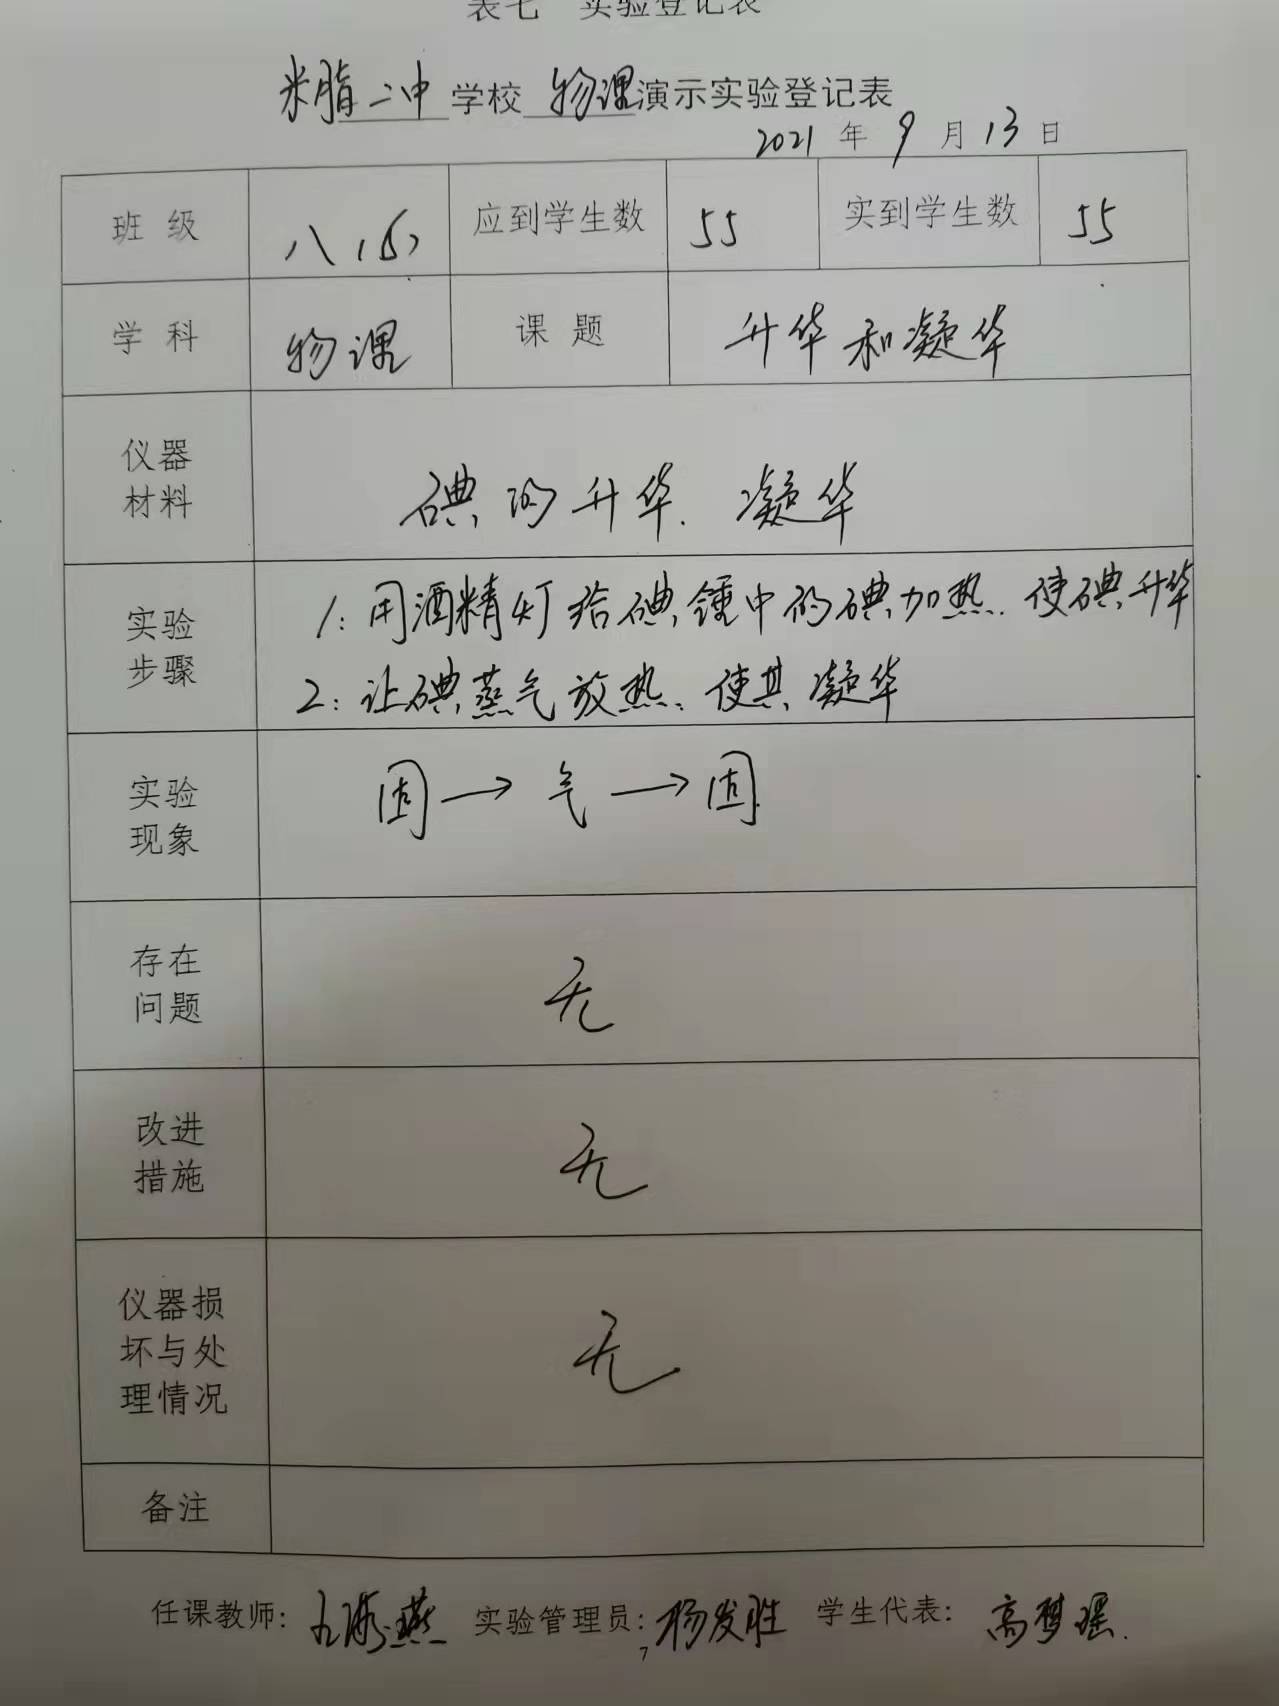 表七 实验登记表
米脂二中学校物理演示实验登记表
2021年9月13日
班级 八(6) 应到学生数 55 实到学生数 55
学科 物理 课题 升华和凝华
仪器
材料
碘的升华、凝华
实验
步骤
1:用酒精灯给碘锤中的碘加热.使碘升华
2:让碘蒸气放热.使其凝华
实验
现象
固→气→固
存在
问题
无
改进
措施
无
仪器损
坏与处
理情况
无
备注
任课教师: 实验管理员:杨发胜 学生代表:高梦瑶
7